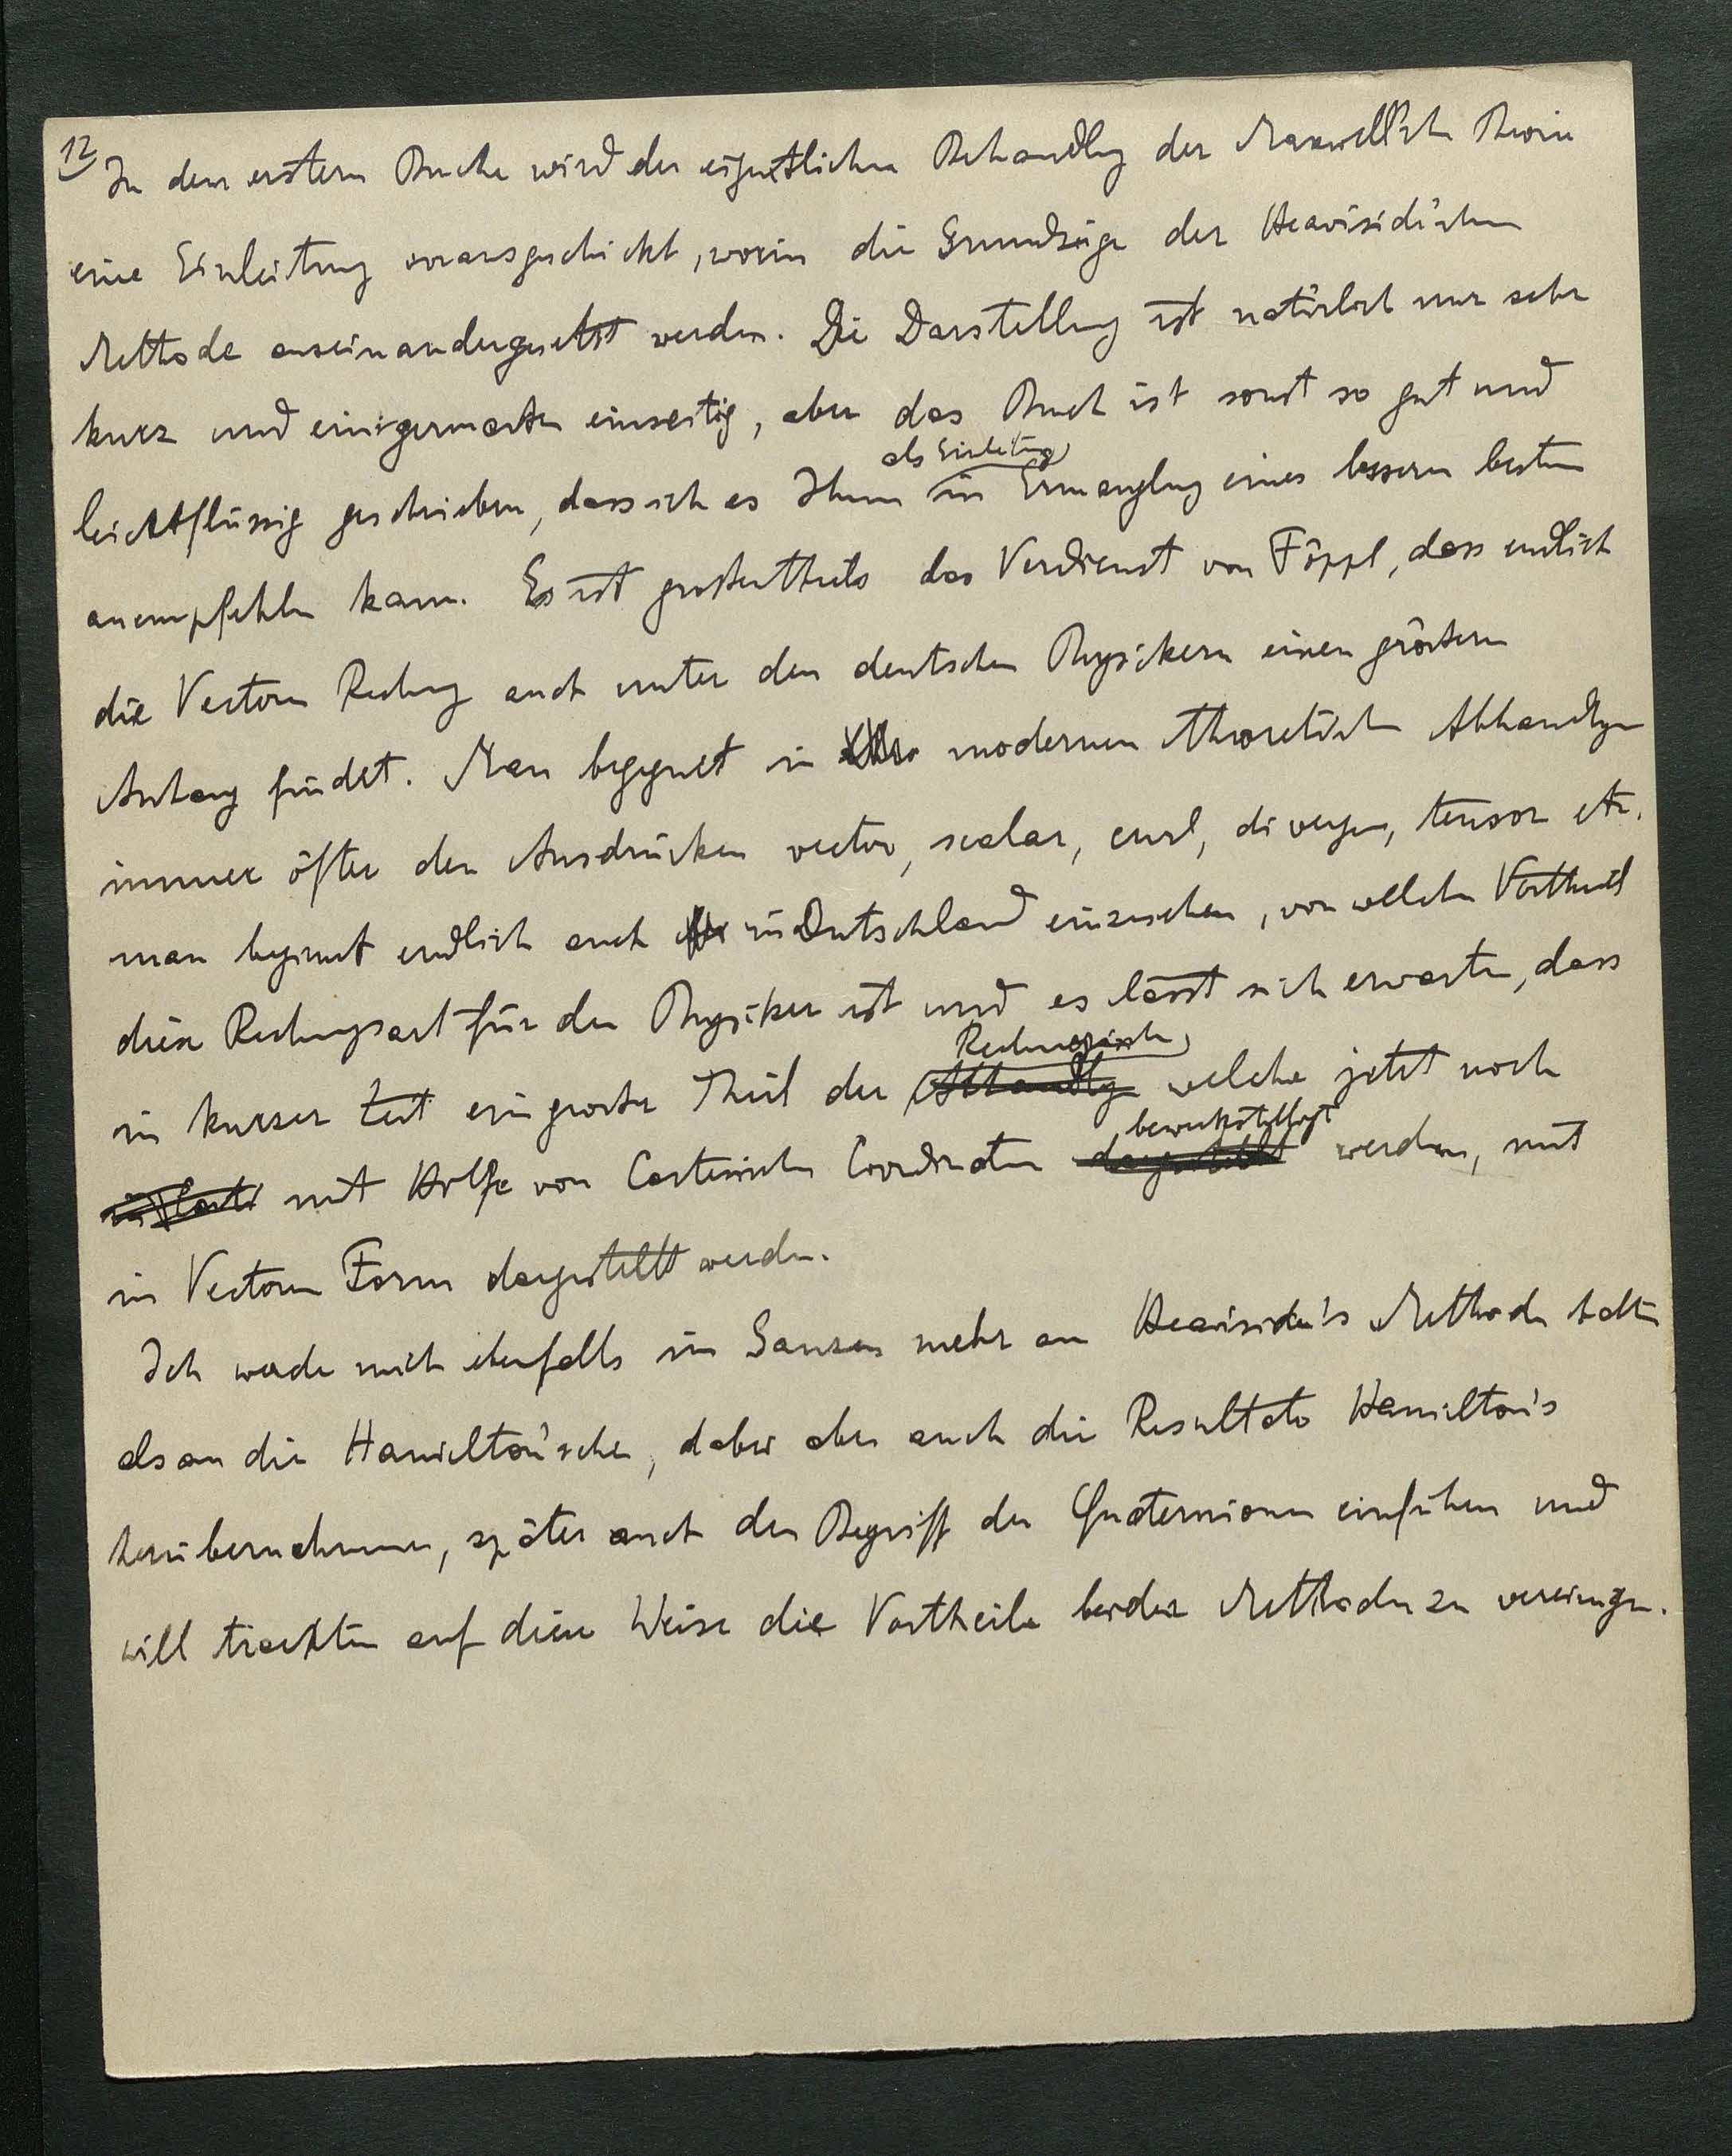 12
In dem erstern Buche wird der eigentlichen Behandlg der Maxwell'sch Theorie
eine Einleitung vorausgeschickt, worin die Grundzüge der Heaviside'schen
Methode auseinandergesetzt werden. Die Darstellung ist natürlich nur sehr
kurz und einigermasten einseitig, aber das Buch ist sonst so gut und
als Einleitung
leichtflüssig geschrieben, dass ich es Ihnen in Ermanglng eines bessern bestens
anempfehlen kann. Es ist grostentheils das Verdienst von Föppl, dass endlich
die Vectoren Rechng auch unter den deutschen Physikern einen gröstern
Anhang findet. Man begegnet in modernen theoretisch Abhandlgn
immer öfter den Ausdrücken vector, scalar, curl, divergenz, tensor etc.
man beginnt endlich auch in Deutschland einzusehen, von welchem Vortheil
diese Rechnungsart für den Physiker ist und es lässt sich erwarten, dass
Rechnungen
in kurzer Zeit ein groster Theil der Abhandlg welche jetzt noch
bewerkstelligt
in Carte mit Hilfe von Cartesischen Coordinaten dargestellt werden, mit
in Vectoren Form dargestellt werden.
Ich werde mich ebenfalls im Ganzen mehr an Heaviside's Methode halten
als an die Hamilton'sche, dabei aber auch die Resultate Hamilton's
herübernehmen, später auch den Begriff der Quaternionen einführen und
will trachten auf diese Weise die Vortheile beider Methoden zu vereinigen.